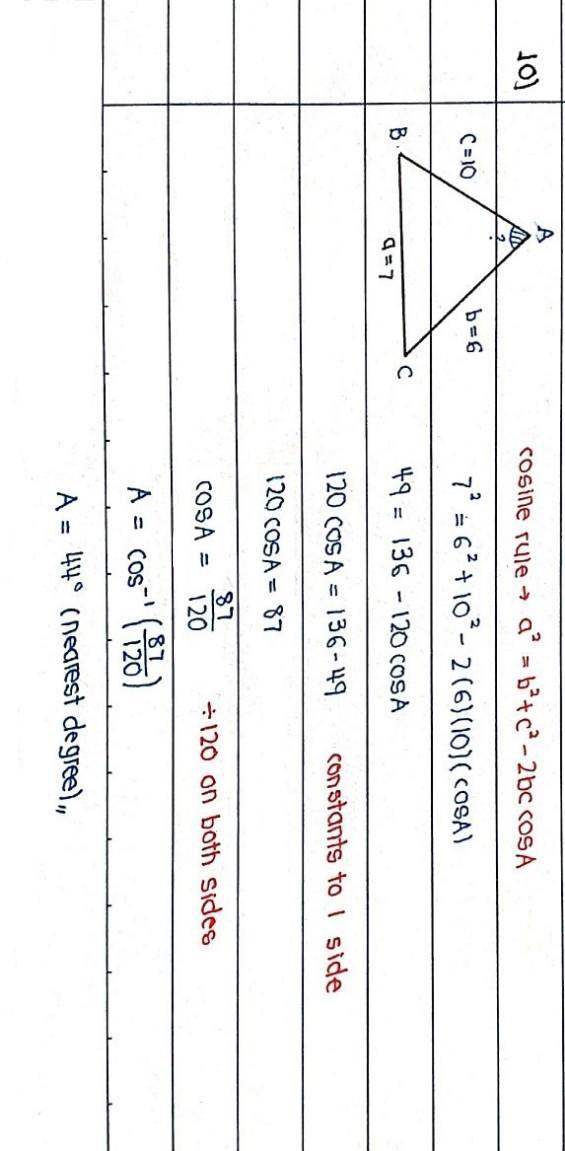 10)
A
?
c=10
b=6
B
a=7
C
cosine rule → a² = b²+c² - 2bc cosA
7² = 6² + 10² - 2(6)(10)(cosA)
49 = 136 - 120 cosA
120 cosA = 136-49 constants to 1 side
120 cosA = 87
cosA = 87/120 ÷120 on both sides
A = cos⁻¹ (87/120)
A = 44° (nearest degree),,